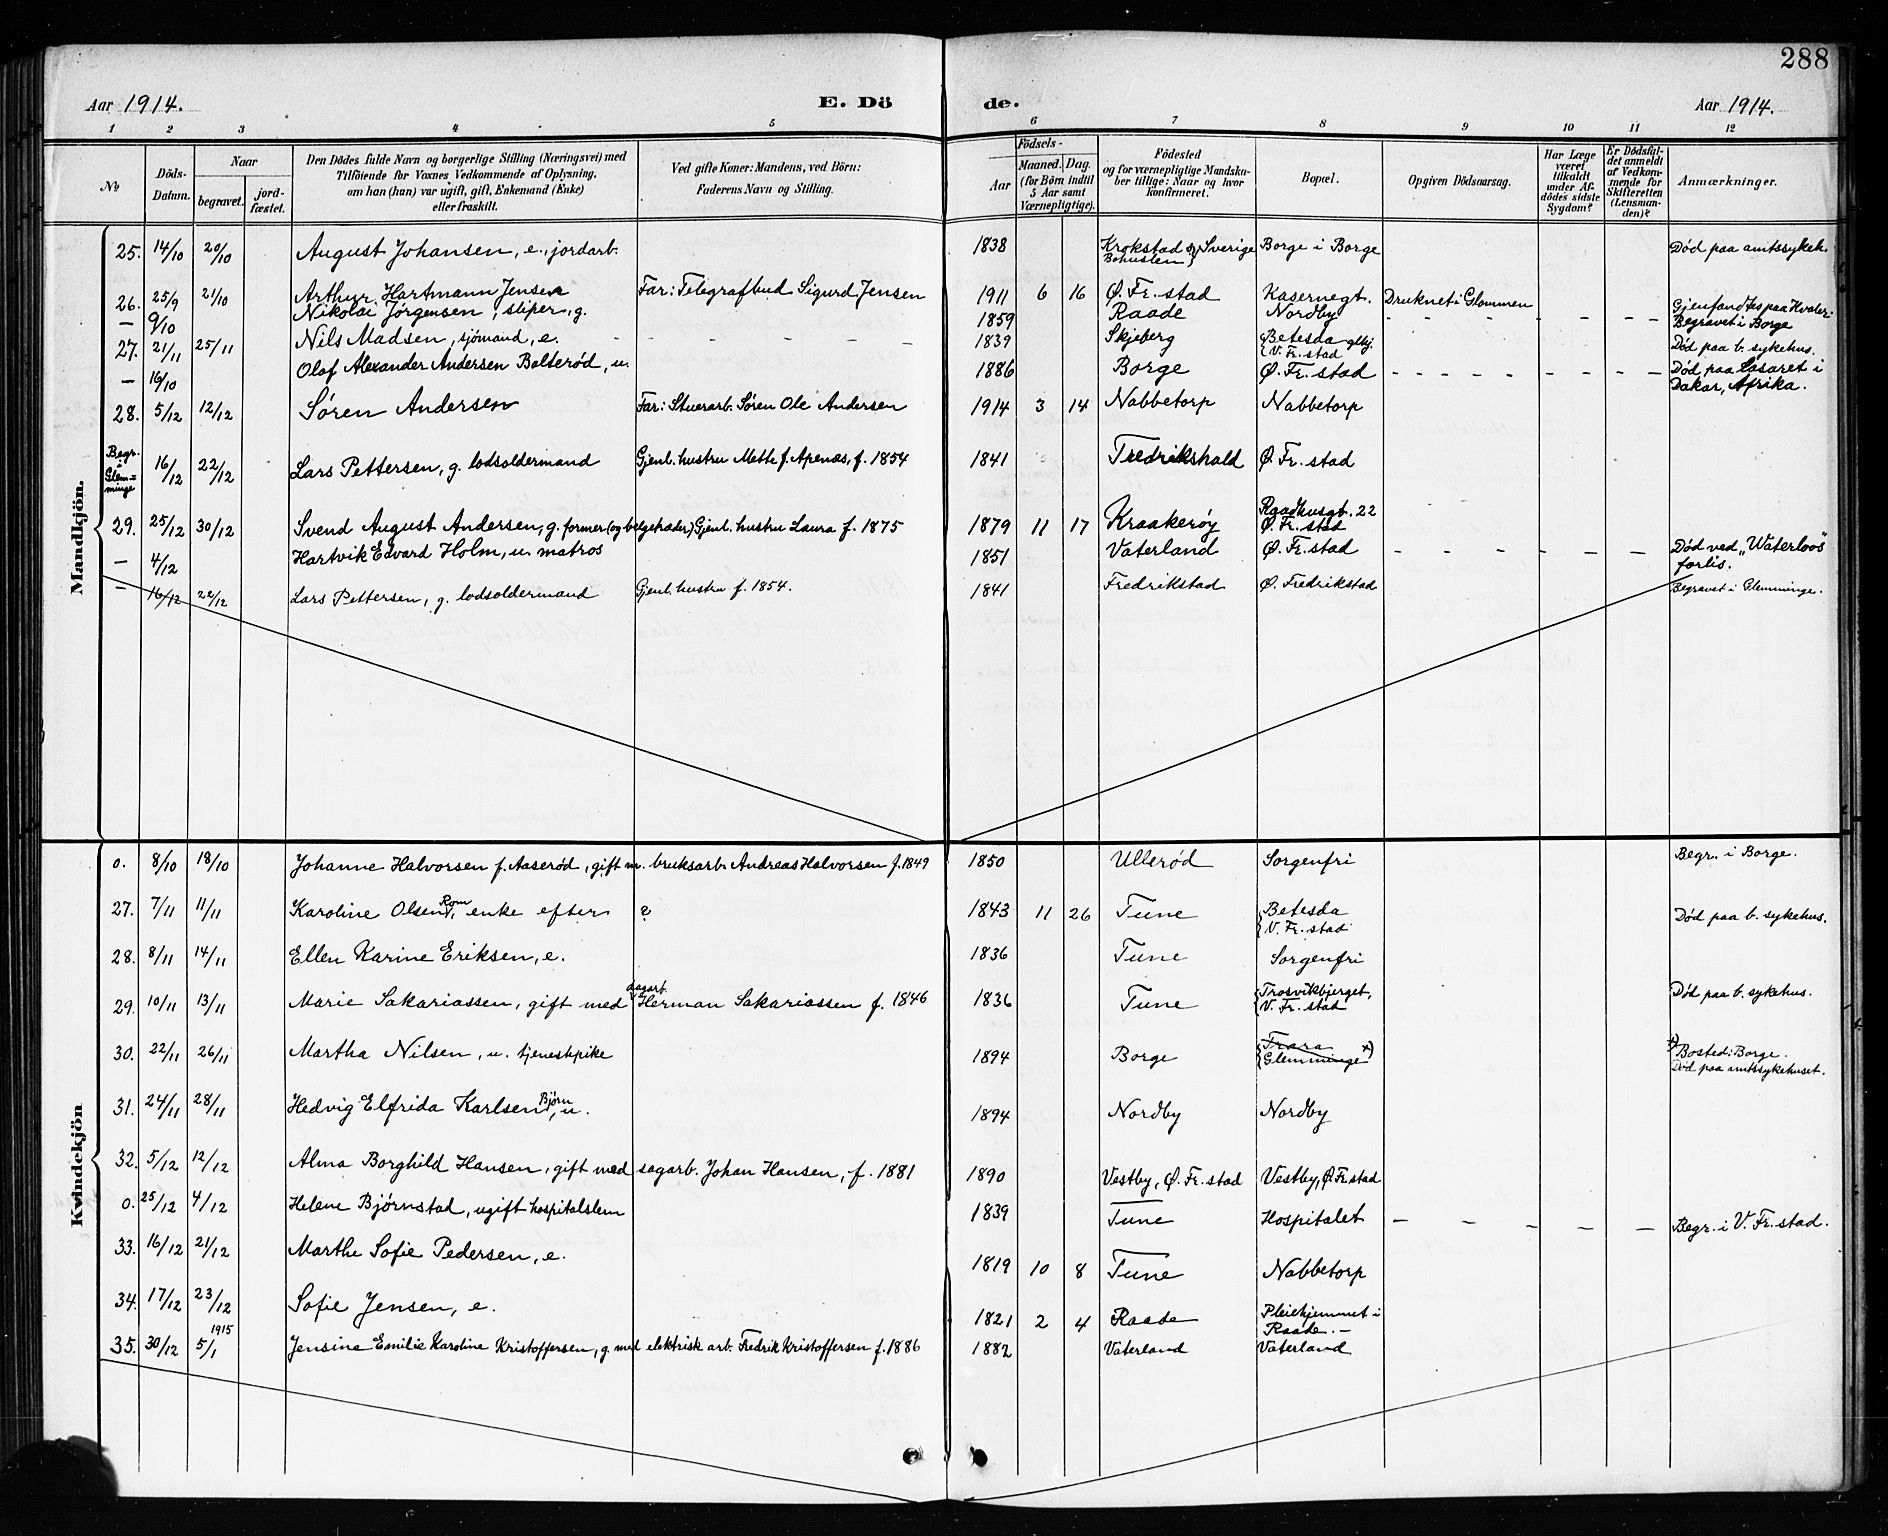 288
Aar 1914. E. Dö de. Aar 1914.
1 2 3 4 5 6 7 8 9 10 11 12
No Döds-Datum. Naar begravet. jord-fæstet. Den Dödes fulde Navn og borgerlige Stilling (Næringsvei) med Tilföiende for Voxnes Vedkommende af Oplysning, om han (hun) var ugift, gift, Enkemand (Enke) eller fraskilt. Ved gifte Koner: Mandens, ved Börn: Faderens Navn og Stilling. Födsels- Aar Maaned. Dag. (for Börn indtil 5 Aar samt Værnepligtige). Födested og for værnepligtige Mandskaber tillige: Naar og hvor konfirmeret. Bopæl. Opgiven Dödsaarsag. Har Læge været tilkaldt under Afdödes sidste Sygdom? Er Dödsfaldet anmeldt af Vedkommende for Skifteretten (Lensmanden)? Anmærkninger.
Mandkjön.
25. 14/10 20/10 August Johansen, e., jordarb. 1838 Krokstad Bohuslen Sverige Borge i Borge Död paa amtssykeh.
26. 25/9 21/10 Arthur Hartmann Jensen Far: Telegrafbud Sigurd Jensen 1911 6 16 Ø. Fr. stad Kasernegt. Druknet i Glommen Gjenfandtes paa Hvaler.
— 9/10 Nikolai Jørgensen, sliper, g. 1859 Raade Nordby - - - - - - Begravet i Borge
27. 21/11 25/11 Nils Madsen, sjömand, e. 1839 Skjeberg Betesda V. Fr. stad Död paa b. sykehus.
— 16/10 Olaf Alexander Andersen Bolterød, u. 1886 Borge Ø. Fr. stad - - - - - - Död paa Lasaret i Dakar, Afrika.
28. 5/12 12/12 Søren Andersen Far: Stuerarb. Søren Ole Andersen 1914 3 14 Nabbetorp Nabbetorp
Begr. i Glemminge 16/12 22/12 Lars Pettersen, g. lodsoldermand Gjenl. hustru Mette f. Apenæs, f. 1854 1841 Fredrikshald Ø. Fr. stad
29. 25/12 30/12 Svend August Andersen, g. former (og belgetræder) Gjenl. hustru Laura f. 1875 1879 11 17 Kraakerøy Raadhusgt. 22 Ø. Fr. stad
— 4/12 Hartvik Edvard Holm, u. matros 1851 Vaterland Ø. Fr. stad - - - - - Död ved „Waterloos" forlis.
— 16/12 22/12 Lars Pettersen, g. lodsoldermand Gjenl. hustru f. 1854. 1841 Fredrikstad Ø. Fredrikstad Begravet i Glemminge.
Kvindekjön
0. 8/10 18/10 Johanne Halvorsen f. Aaserød, gift m. bruksarb. Andreas Halvorsen f. 1849 1850 Ullerød Sorgenfri Begr. i Borge.
27. 7/11 11/11 Karoline Olsen Rom, enke efter ? 1843 11 26 Tune Betesda V. Fr. stad Död paa b. sykehus.
28. 8/11 14/11 Ellen Karine Eriksen, e. 1836 Tune Sorgenfri
29. 10/11 13/11 Marie Sakariassen, gift med dagarb. Herman Sakariassen f. 1846 1836 Tune Trosvikbjerget, V. Fr. stad Död paa b. sykehus.
30. 22/11 26/11 Martha Nilsen, u. tjenestpike 1894 Borge Trara Glemminge x) x) Bosted: Borge. Död paa amtssykehuset.
31. 24/11 28/11 Hedvig Elfrida Karlsen Bjørn, u. 1894 Nordby Nordby
32. 5/12 12/12 Alma Borghild Hansen, gift med sagarb. Johan Hansen, f. 1881 1890 Vestby, Ø. Fr. stad Vestby, Ø. Fr stad
0. 25/12 4/12 Helene Bjørnstad, ugift hospitalslem 1839 Tune Hospitalet - - - - - Begr. i V. Fr. stad.
33. 16/12 21/12 Marthe Sofie Pedersen, e. 1819 10 8 Tune Nabbetorp
34. 17/12 23/12 Sofie Jensen, e. 1821 2 4 Raade Pleiehjemmet i Raade. —
35. 30/12 5/1 1915 Jensine Emilie Karoline Kristoffersen, g. med elektrisk arb. Fredrik Kristoffersen f. 1886 1882 Vaterland Vaterland